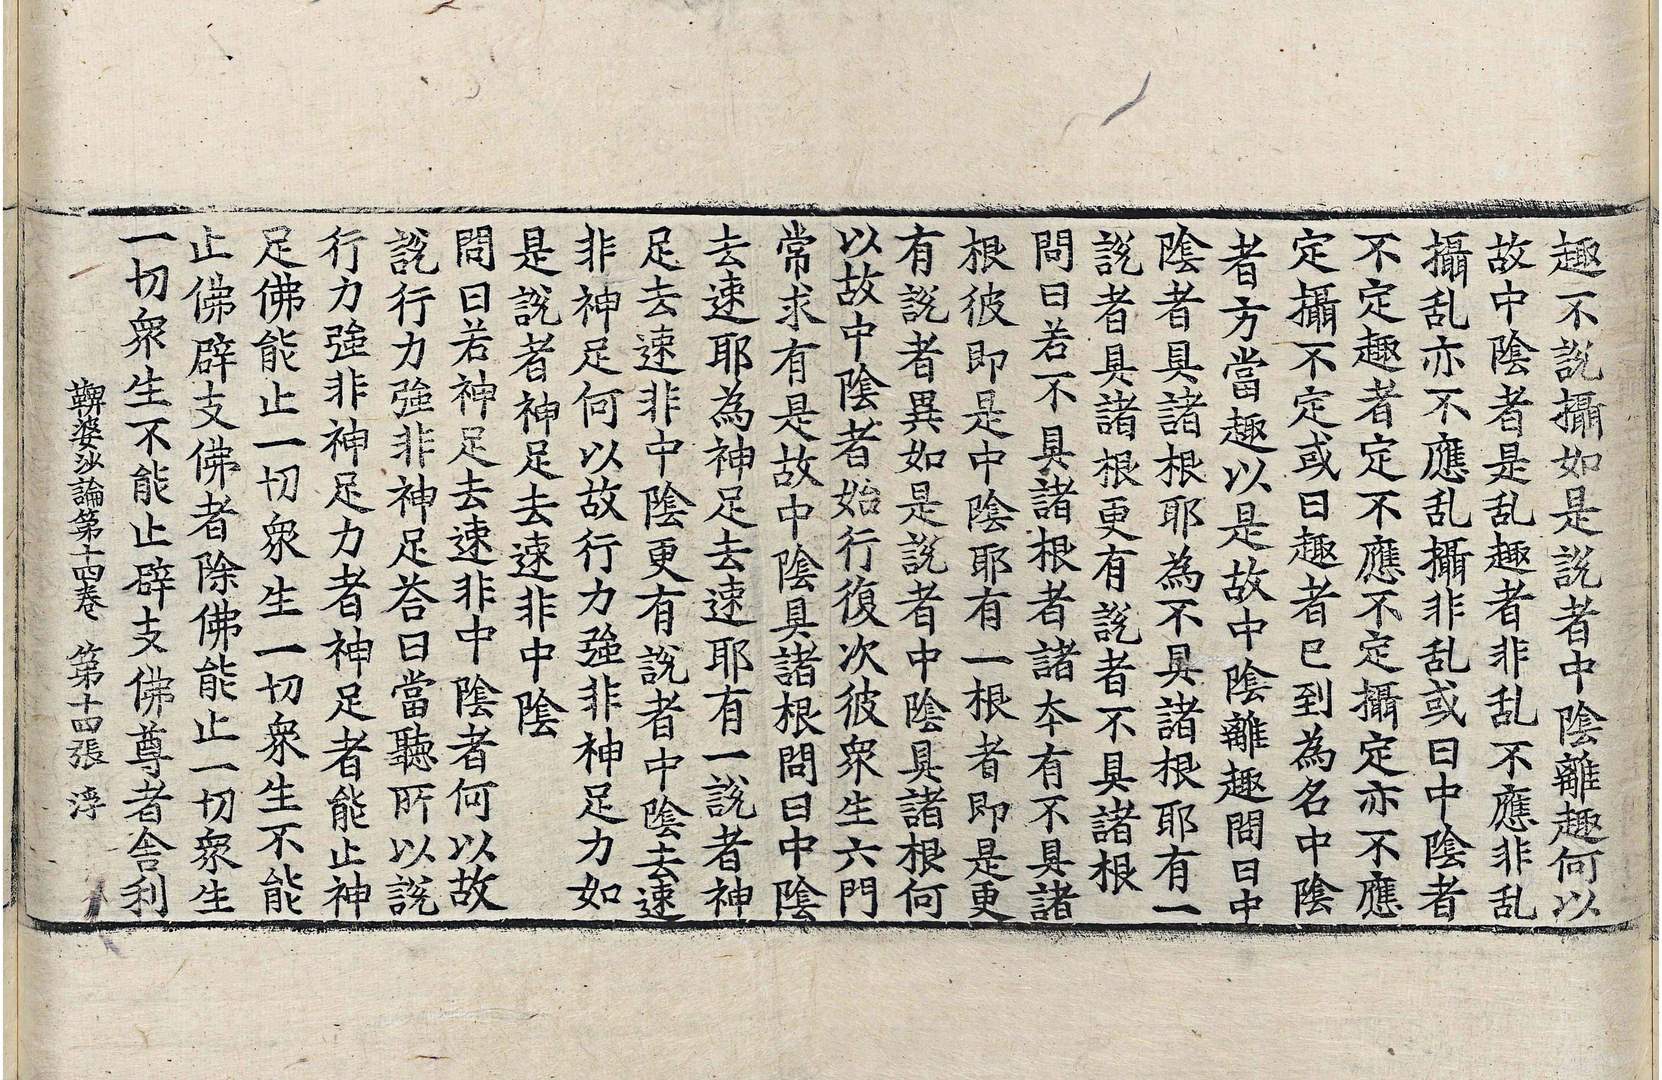 趣不說攝如是說者中陰離趣何以
故中陰者是乱趣者非乱不應非乱
攝乱亦不應乱攝非乱或曰中陰者
不定趣者定不應不定攝定亦不應
定攝不定或曰趣者已到為名中陰
者方當趣以是故中陰離趣問曰中
陰者具諸根耶為不具諸根耶有一
說者具諸根更有說者不具諸根
問曰若不具諸根者諸夲有不具諸
根彼即是中陰耶有一根者即是更
有說者異如是說者中陰具諸根何
以故中陰者始行復次彼衆生六門
常求有是故中陰具諸根問曰中陰
去速耶為神足去速耶有一說者神
足去速非中陰更有說者中陰去速
非神足何以故行力強非神足力如
是說者神足去速非中陰
問曰若神足去速非中陰者何以故
說行力強非神足荅曰當聽所以說
行力強非神足力者神足者能止神
足佛能止一切衆生一切衆生不能
止佛辟支佛者除佛能止一切衆生
一切衆生不能止辟支佛尊者舎利
鞞婆沙論第十四卷　第十四張　淳